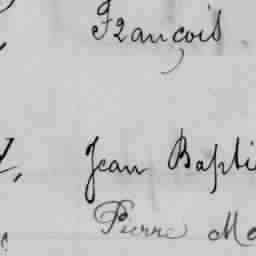 François
Jean Bapti
Pierre Ma